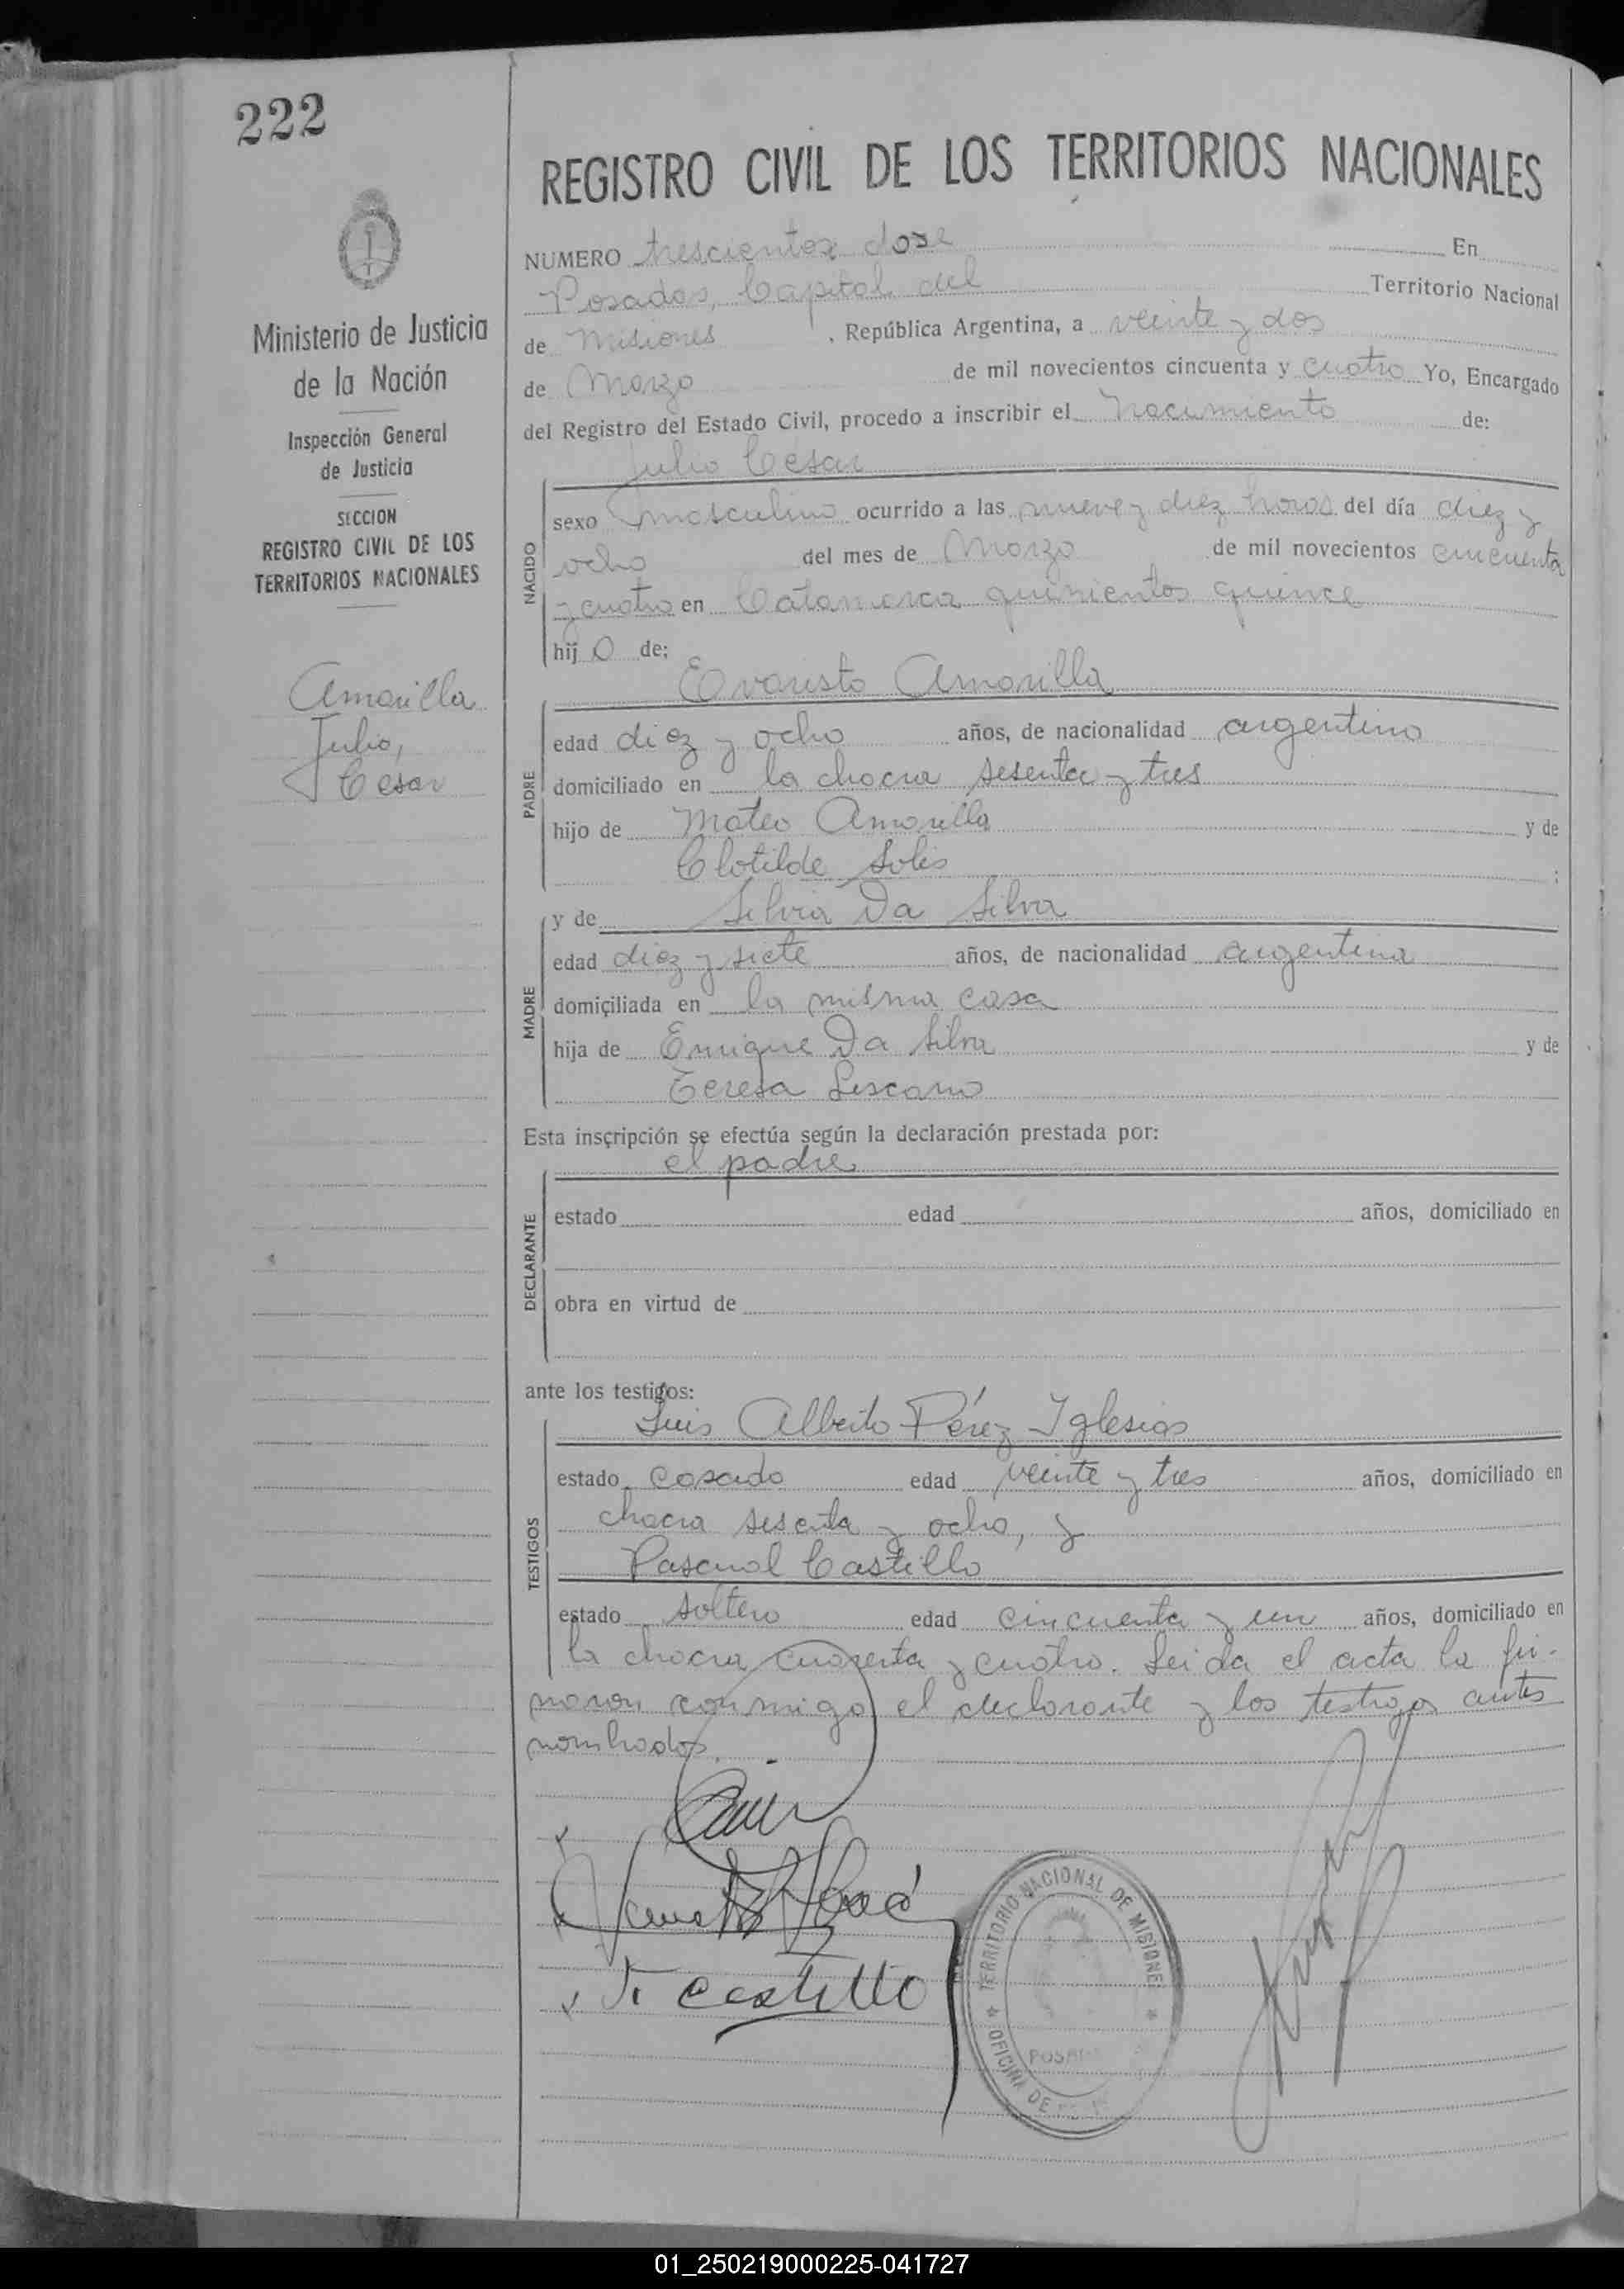 222
REGISTRO CIVIL DE LOS TERRITORIOS NACIONALES
Ministerio de Justicia
de la Nación
Inspección General
de Justicia
SECCION
REGISTRO CIVIL DE LOS
TERRITORIOS NACIONALES
Amarilla
Julio,
Cesar
NUMERO trescientos dose En
Posadas, Capital del Territorio Nacional
de Misiones, República Argentina, a veinte y dos
de Marzo de mil novecientos cincuenta y cuatro Yo, Encargado
del Registro del Estado Civil, procedo a inscribir el Nacimiento de:
Julio Cesar
NACIDO
sexo masculino ocurrido a las nueve y diez horas del día diez y
ocho del mes de Marzo de mil novecientos cincuenta
y cuatro en Catamarca quinientos quince
hijo de:
Evaristo Amarilla
PADRE
edad diez y ocho años, de nacionalidad argentino
domiciliado en la chacra sesenta y tres
hijo de Mateo Amarilla y de
Clotilde Solis ;
MADRE
y de Silvia Da Silva
edad diez y siete años, de nacionalidad argentina
domiciliada en la misma casa
hija de Enrique Da Silva y de
Teresa Lescano
Esta inscripción se efectúa según la declaración prestada por:
el padre
DECLARANTE
estado edad años, domiciliado en
obra en virtud de
ante los testigos:
Luis Alberto Pérez Iglesias
TESTIGOS
estado casado edad veinte y tres años, domiciliado en
chacra sesenta y ocho, y
Pascual Castillo
estado soltero edad cincuenta y un años, domiciliado en
la chacra cuarenta y cuatro. Leida el acta la fir-
maron conmigo el declarante y los testigos antes
nombrados.
Castillo
TERRITORIO NACIONAL DE MISIONES
OFICINA DE
01_250219000225-041727